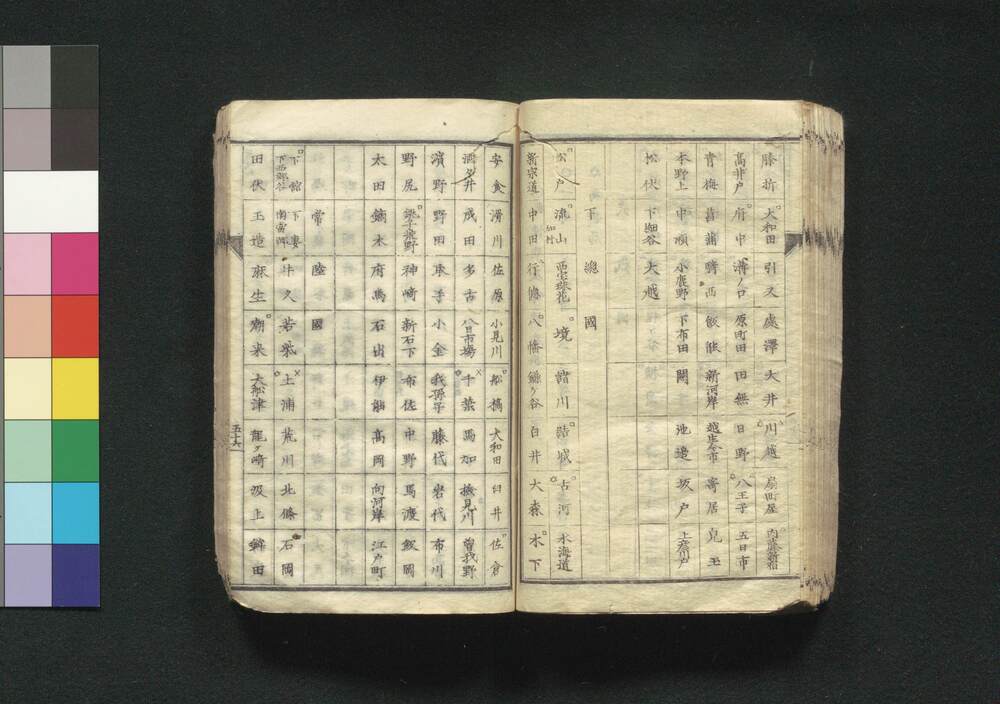 膝折 大和田 引又 處澤 大井 川越 扇町屋 内藤新宿
高井戸 府中 溝ノ口 原町田 田無 日野 八王子 五日市
青梅 菖蒲 飯能 新河岸 越生今市 寄居 兒玉
本野上 中 小鹿野 下布田 関 池邊 坂戸
松伏 下細谷 大越
下總國
松戸 流山 境 諸川 結城 古河 水海道
新宗道 中田 行徳 八幡 鎌ヶ谷 白井 大森 木下
安食 滑川 佐原 小見川 船橋 大和田 臼井 佐倉
酒々井 成田 多古 八日市場 千葉 馬加 検見川 曽我野
濱野 野田 取手 小金 我孫子 藤代 岩代 布川
野尻 神崎 新石下 布佐 中野 馬渡 飯岡
太田 鏑木 府馬 石出 伊能 高岡 向河岸 江戸町
常陸國
下館 下妻 牛久 若柴 土浦 荒川 北條 石岡
田伏 玉造 麻生 潮来 大舩津 龍ヶ崎 汲上 鉾田
五十六